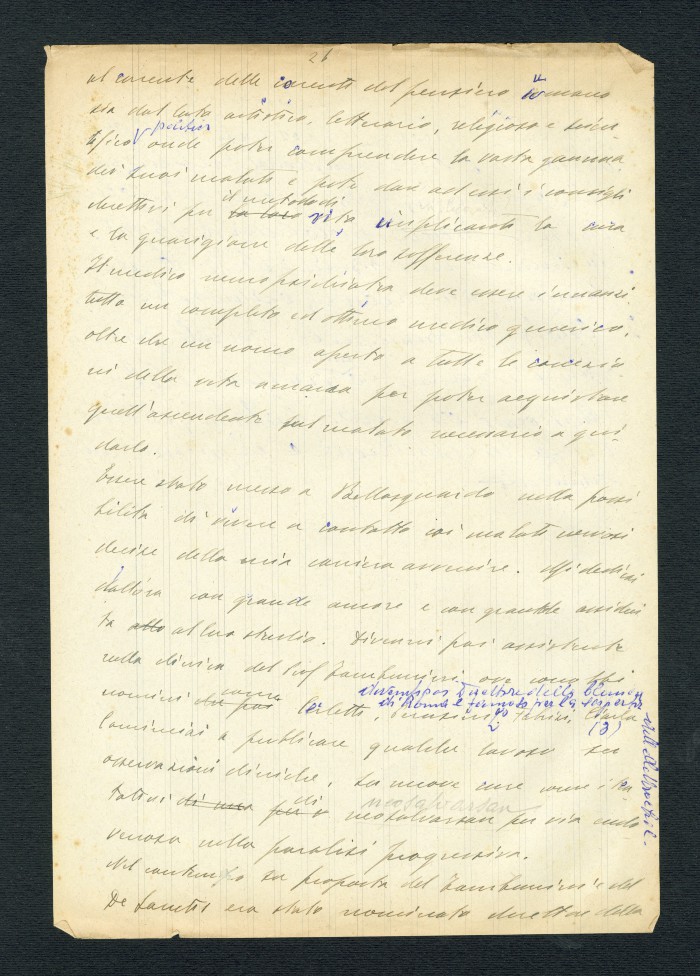 26
al corrente delle correnti del pensiero umano
sia dal lato artistico, letterario, religioso e scien
tifico politico onde poter comprendere la vasta gamma
dei suoi malati e poter dare ad essi i consigli
direttivi per il metodo di la loro vita implicanti la cura
e la guarigione delle loro sofferenze.
Il medico neuropsichiatra deve essere innanzi
tutto un completo ed ottimo medico generico,
oltre che un uomo aperto a tutte le concezio
ni della vita umana per poter acquistare
quell'ascendente sul malato necessario a gui-
darlo.
Essere stato messo a Bellosguardo nella possi
bilità di vivere a contatto coi malati nervosi
decise della mia carriera avvenire. Mi dedicai
dall'ora con grande amore e con grande assidui
tà allo al loro studio. Divenni poi assistente
nella clinica del Prof Tamburini, ove conobbi
uomini che poi come Cerletti,
il direttore della Clinica
di Roma è famoso per la
Cominciai a publicare qualche lavoro su
osservazioni cliniche, su nuove cure come i ten
tativi di una per di neosalvarsan per via endo
neosalvarsan
venosa nella paralisi progressiva.
Nel contempo su proposta del Tamburini e del
De Sanctis ero stato nominato direttore della